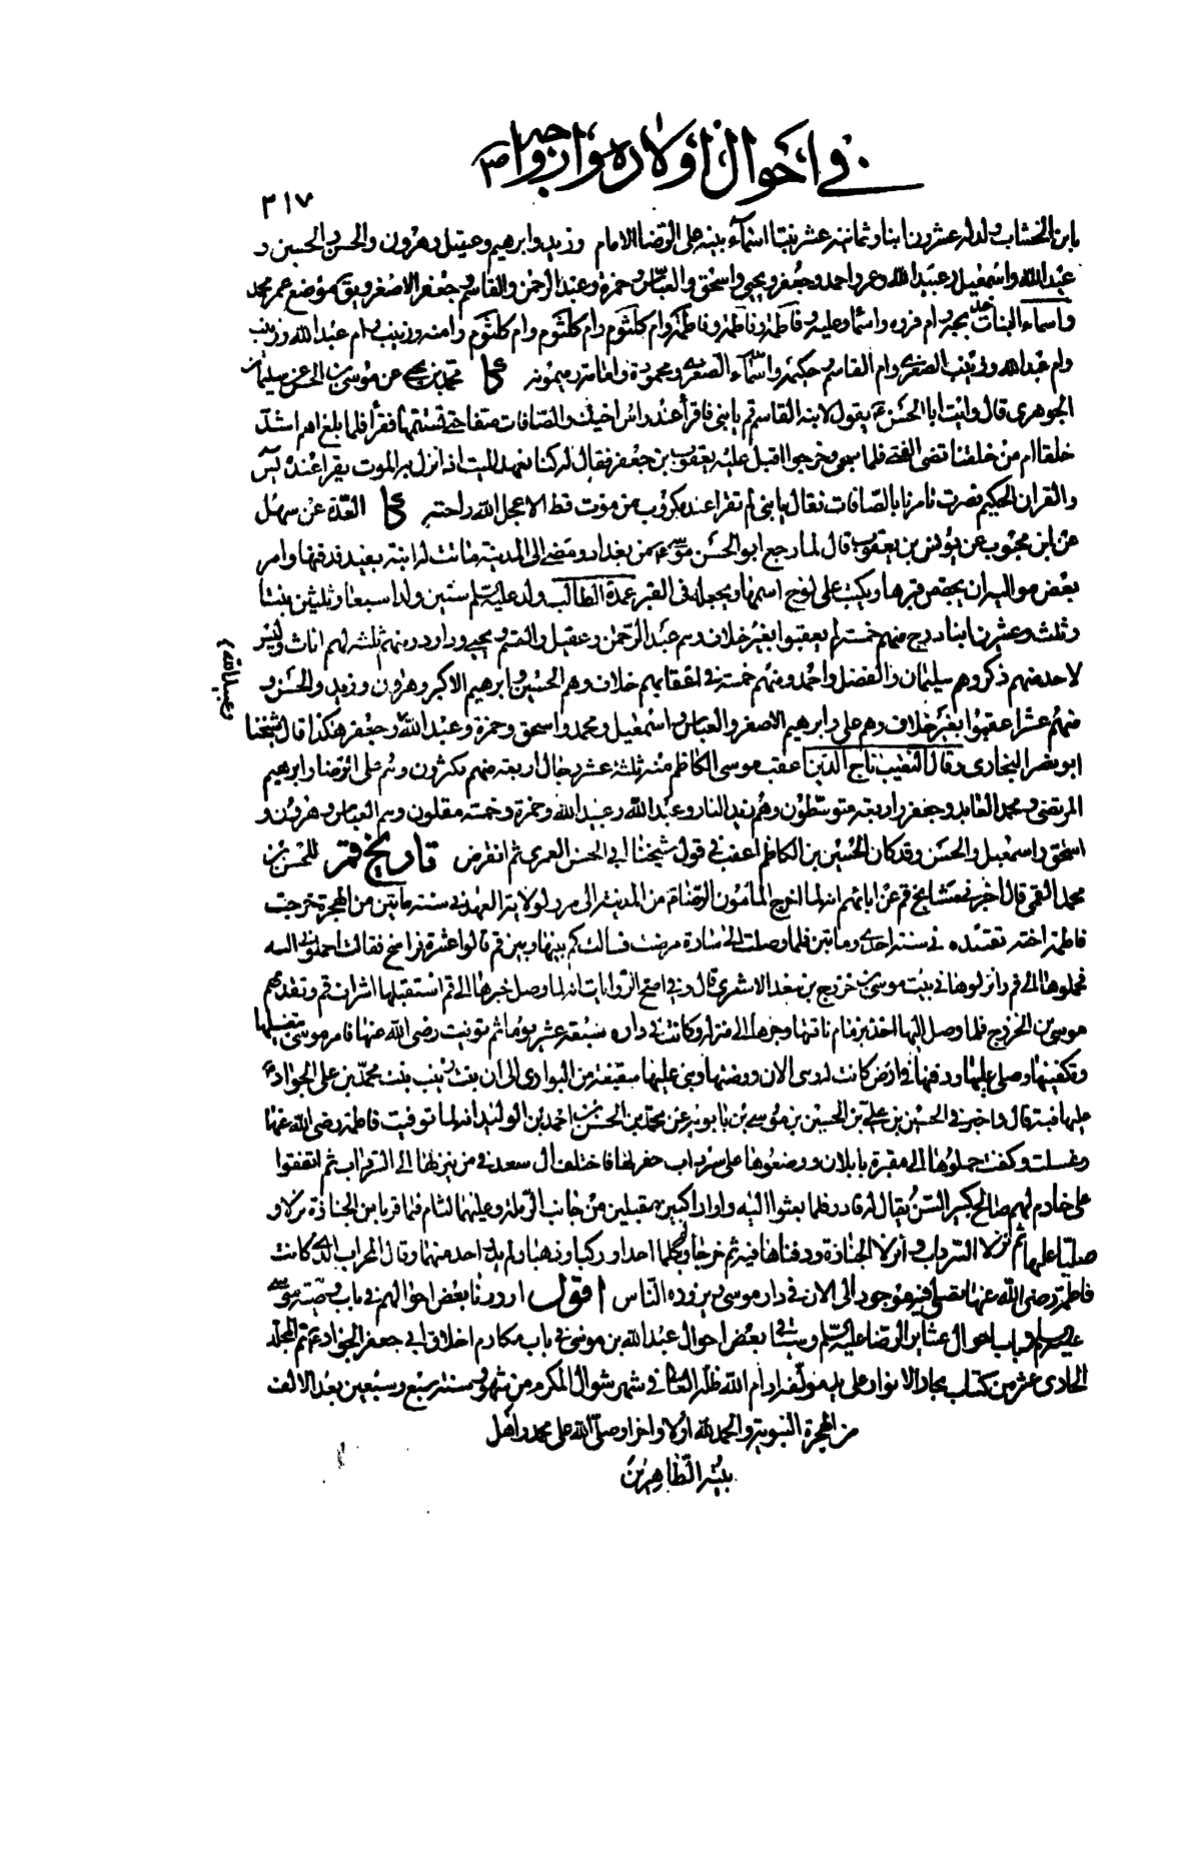 في احوال اولاده وازواجه ص
٣١٧
ابن الخشاب ولد له عشرون ابنا وثمانية عشر بنتا اسماء بنيه علي الرضا الامام وزيد وابرهيم وعقيل وهرون والحسن والحسين و
عبد الله واسمعيل وعبيد الله وعمر واحمد وجعفر ويحيى واسحق والعباس وحمزة وعبد الرحمن والقاسم وجعفر الاصغر ويق موضع عمر محمد
واسماء البنات خديجة وام فروه واسماء وعلية وفاطمة وفاطمة وام كلثوم وام كلثوم وام كلثوم وامنه وزينب وام عبد الله وزينب
وام عبد الله وزينب الصغرى وام القاسم وحكيمة واسماء الصغرى ومحمودة وامامة وميمونه كا محمد بن يحيى عن موسى بن الحسن عن سليمان
الجوهرى قال رايت ابا الحسن ع يقول لابنه القاسم قم يا بنى فاقرا عند راس اخيك والصافات صفا حتى تستتمها فقرا فلما بلغ اهم اشد
خلقا ام من خلقنا قضى الفتى فلما سجى وخرجوا اقبل عليه يعقوب بن جعفر فقال له كنا نعهد الميت اذا نزل به الموت يقرا عنده يس
والقران الحكيم فصرت تامرنا بالصافات فقال يا بنى لم تقرا عند مكروب من موت قط الا عجل الله راحته كا العدة عن سهل
عن ابن محبوب عن يونس بن يعقوب قال لما رجع ابو الحسن موسى ع من بغداد ومضى الى المدينة ماتت له ابنة بفيد فدفنها وامر
بعض مواليه ان يجصص قبرها ويكتب على لوح اسمها ويجعله فى القبر عمدة الطالب ولد عليه السلم ستين ولدا سبعا وثلثين بنتا
وثلث وعشرين ابنا درج منهم خمسة لم يعقبوا بغير خلاف وهم عبد الرحمن وعقيل والقسم ويحيى وداود ومنهم ثلثة لهم اناث وليس
لاحد منهم ذكر وهم سليمان والفضل واحمد ومنهم خمسة في اعقابهم خلاف وهم الحسين وابرهيم الاكبر وهرون وزيد والحسن و
منهم عشرة اعقبوا بغير خلاف وهم علي وابرهيم الاصغر والعباس واسمعيل ومحمد واسحق وحمزة وعبد الله وجعفر هكذا قال شيخنا
وعبيد الله
ابو نصر البخارى وقال النقيب تاج الدين اعقب موسى الكاظم من ثلثة عشر رجلا اربعة منهم مكثرون وهم علي الرضا وابرهيم
المرتضى ومحمد العابد وجعفر واربعة متوسطون وهم زيد النار وعبد الله وعبيد الله وحمزة وخمسة مقلون وهم العباس وهرون و
اسحق واسمعيل والحسن وقد كان الحسين بن الكاظم اعقب في قول شيخنا ابي الحسن العمرى ثم انقرض تاريخ قم للحسن بن
محمد القمى قال اخبرني مشايخ قم عن ابائهم انه لما اخرج المامون الرضا ع من المدينة الى مرو لولاية العهد في سنة مائتين من الهجرة خرجت
فاطمة اخته تقصده في سنة احدى ومائتين فلما وصلت الى ساوة مرضت فسالت كم بينها وبين قم قالوا عشرة فراسخ فقالت احملونى اليه
فحملوها الى قم وانزلوها في بيت موسى بن خزرج بن سعد الاشعرى قال وفي اصح الروايات انه لما وصل خبرها الى قم استقبلها اشراف قم وتقدمهم
موسى بن الخزرج فلما وصل اليها اخذ بزمام ناقتها وجرها الى منزله وكانت في داره سبعة عشر يوما ثم توفيت رضى الله عنها فامر موسى بتغسيلها
وتكفينها وصلى عليها ودفنها في ارض كانت له وهى الان روضتها وبنى عليها سقيفة من البوارى الى ان بنت زينب بنت محمد بن على الجواد ع
عليها قبة قال واخبرنى الحسين بن علي بن الحسين بن موسى بن بابويه عن محمد بن الحسن بن احمد بن الوليد انه لما توفيت فاطمة رضى الله عنها
وغسلت وكفنت حملوها الى مقبرة بابلان ووضعوها على سرداب حفر لها فاختلف ال سعد فى من ينزلها الى السرداب ثم اتفقوا
على خادم لهم صالح كبير السن يقال له قادر فلما بعثوا اليه راوا راكبين مقبلين من جانب الرملة وعليهما لثام فلما قربا من الجنازة نزلا و
صليا عليها ثم نزلا السرداب وانزلا الجنازة ودفناها فيه ثم خرجا ولم يكلما احدا وركبا وذهبا ولم يدر احد منهما وقال المحراب الذى كانت
فاطمة رضى الله عنها تصلى فيه موجود الى الان في دار موسى ويزوره الناس اقول اوردنا بعض احوالهم في باب وصية موسى
عليه السلم وباب احوال عشاير الرضا عليه السلم وسياتي بعض احوال عبد الله بن موسى في باب مكارم اخلاق ابى جعفر الجواد ع تم المجلد
الحادى عشر من كتاب بحار الانوار على يد مؤلفه ادام الله ظله العالى في شهر شوال المكرم من شهور سنة سبع وسبعين بعد الالف
من الهجرة النبوية والحمد لله اولا واخرا وصلى الله على محمد واهل
بيته الطاهرين